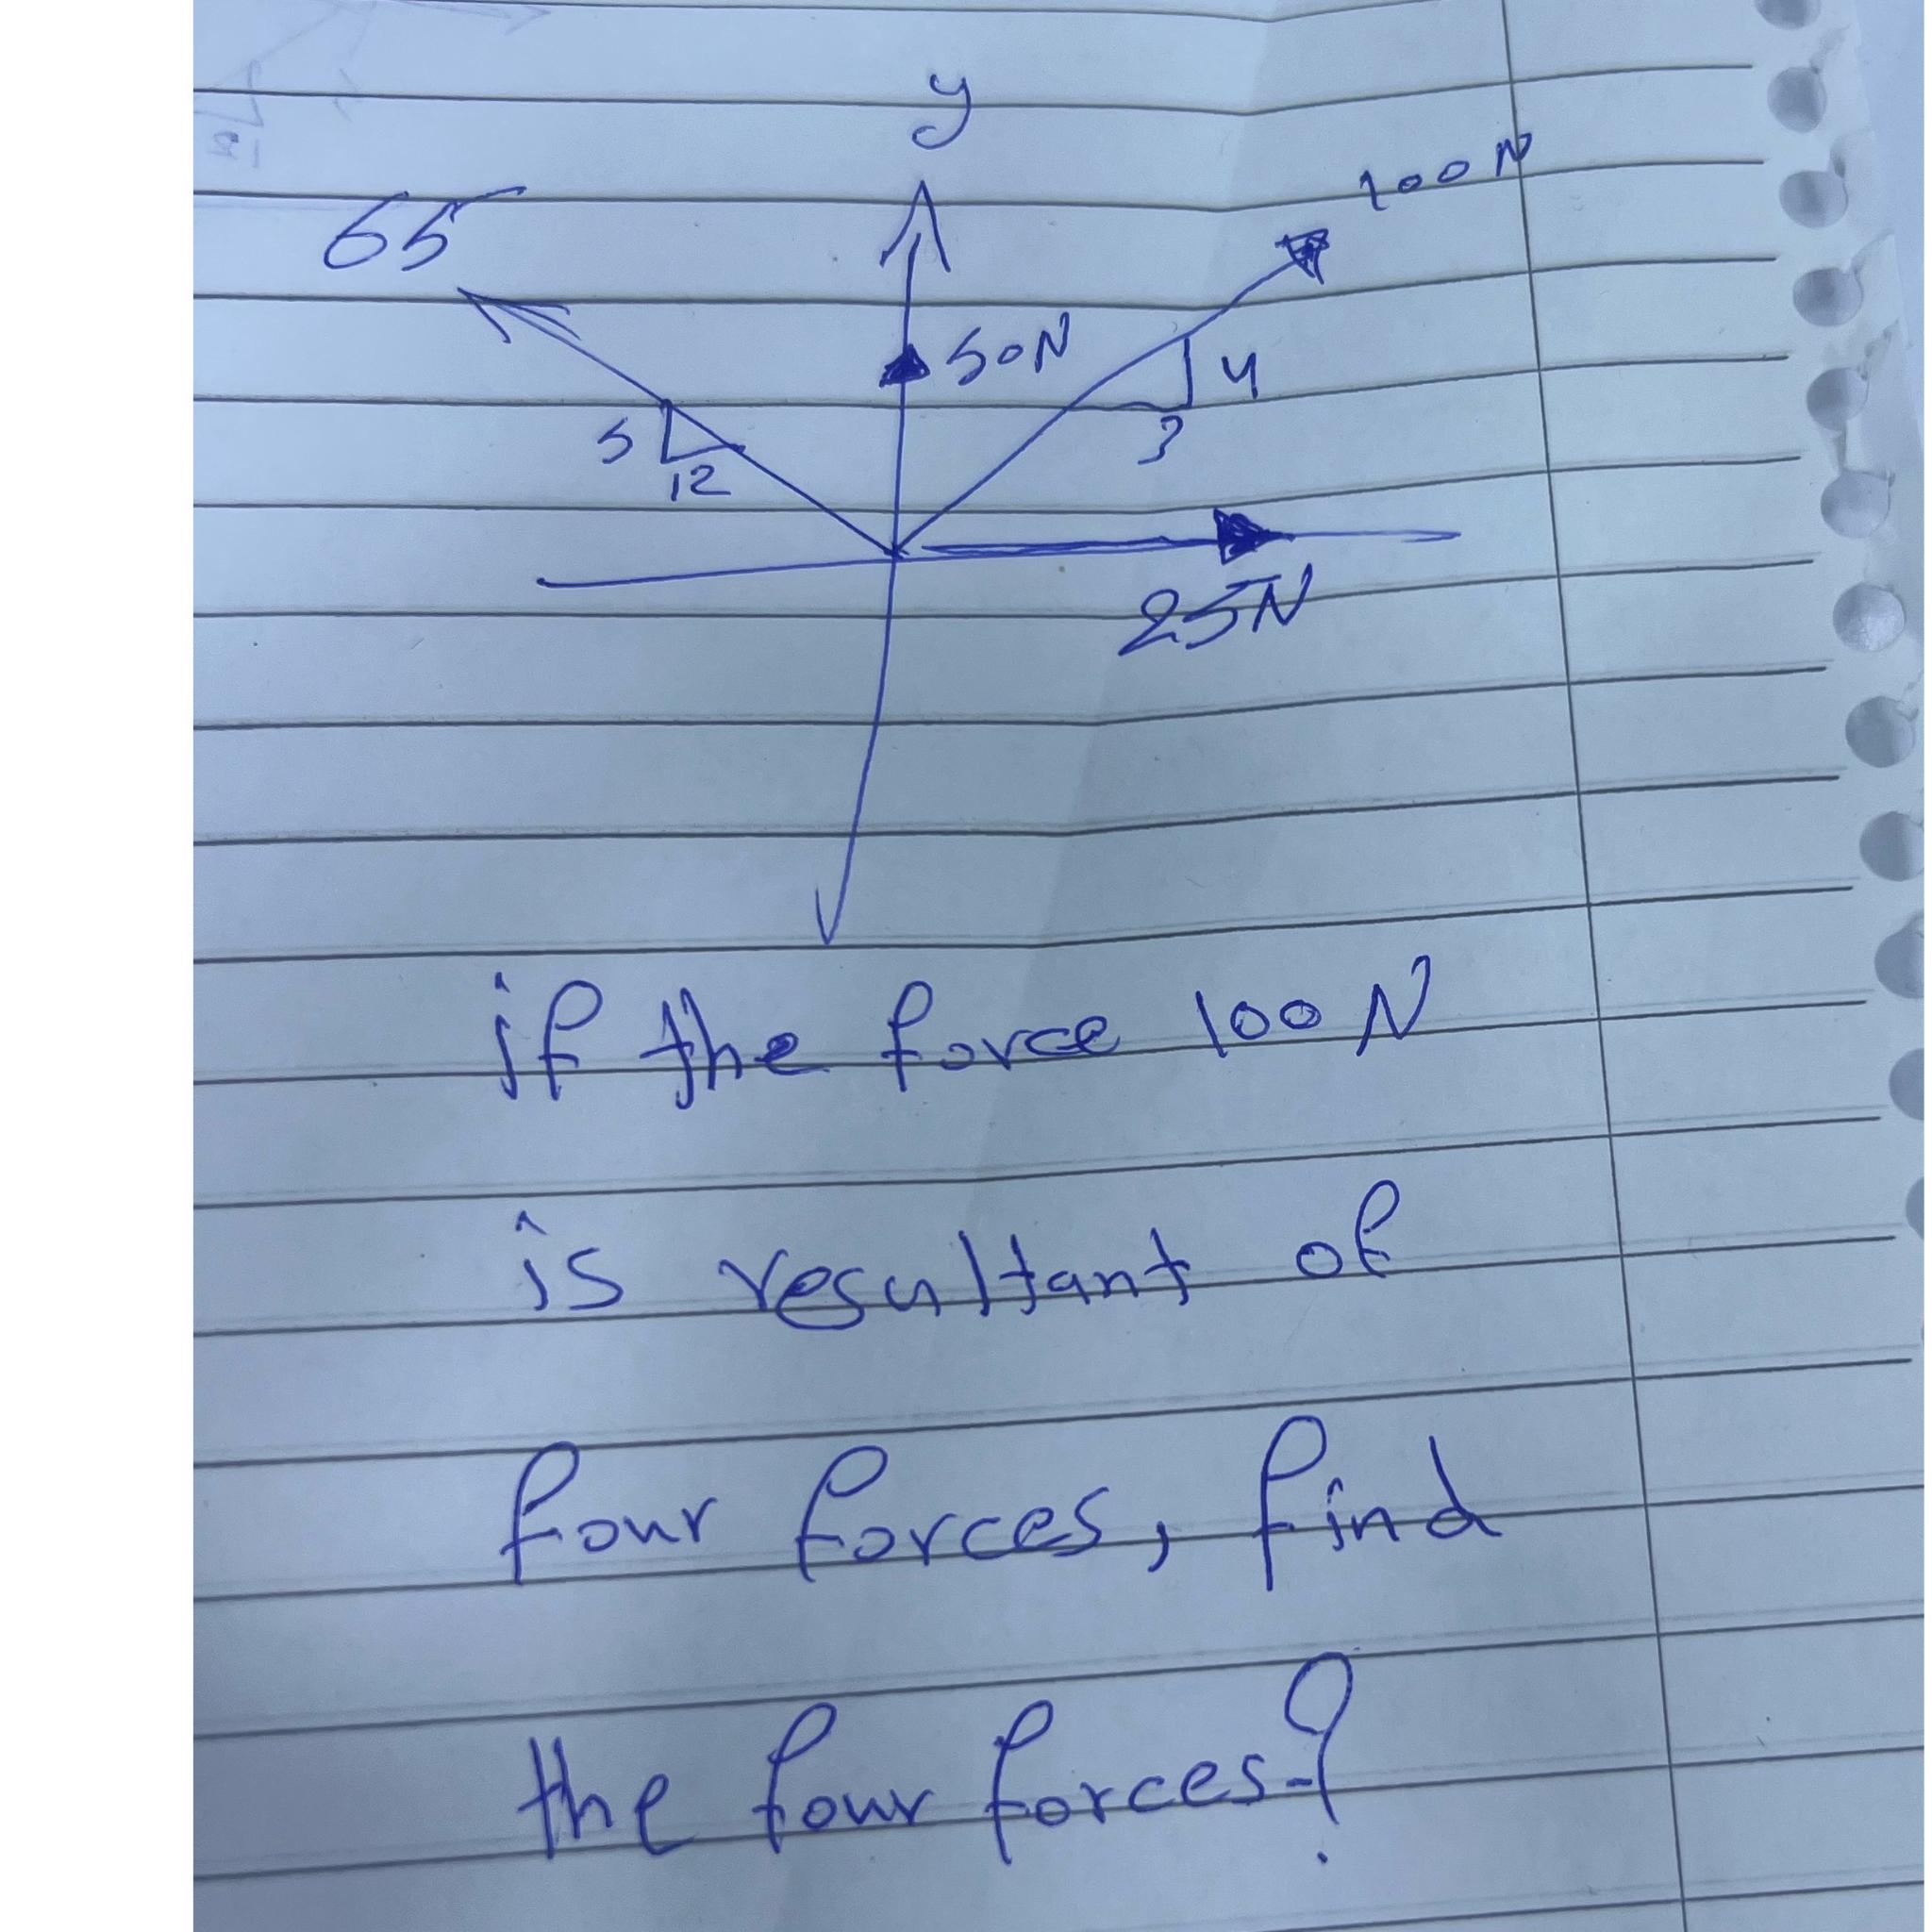 y
100 N
65
50N
4
3
5
12
25N
if the force 100 N
is resultant of
four forces, find
the four forces?